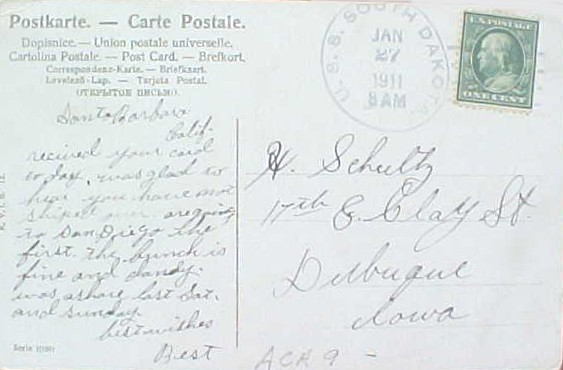 Postkarte. — Carte Postale.
Dopisnice. — Union postale universelle.
Cartolina Postale. — Post Card. — Brefkort.
Correspondenz-Karte. — Briefkaart.
Levelező-Lap. — Tarjeta Postal.
(ОТКРЫТОЕ ПИСЬМО).
U.S.S. SOUTH DAKOTA
JAN
27
1911
8 AM
U.S. POSTAGE
ONE CENT
Santa Barbara
Calif.
recived your card
to day, was glad to
hear you have not
over are going
to San Diego the
first. the bunch is
fine and dandy.
was ashore last Sat.
and sunday
best wishes
Best
H. Schultz
17th & Clay St.
Dubuque
Iowa
ACR 9 -
Serie